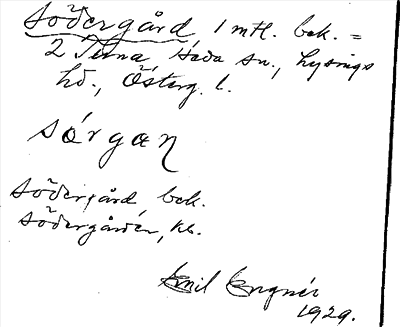 Södergård, 1 mtl. bek. =
2 Tuna, Heda sn., Lysings
hd., Österg. l.
sörgan
Södergård bek.
Södergården, kb.
Emil Engnér
1929.